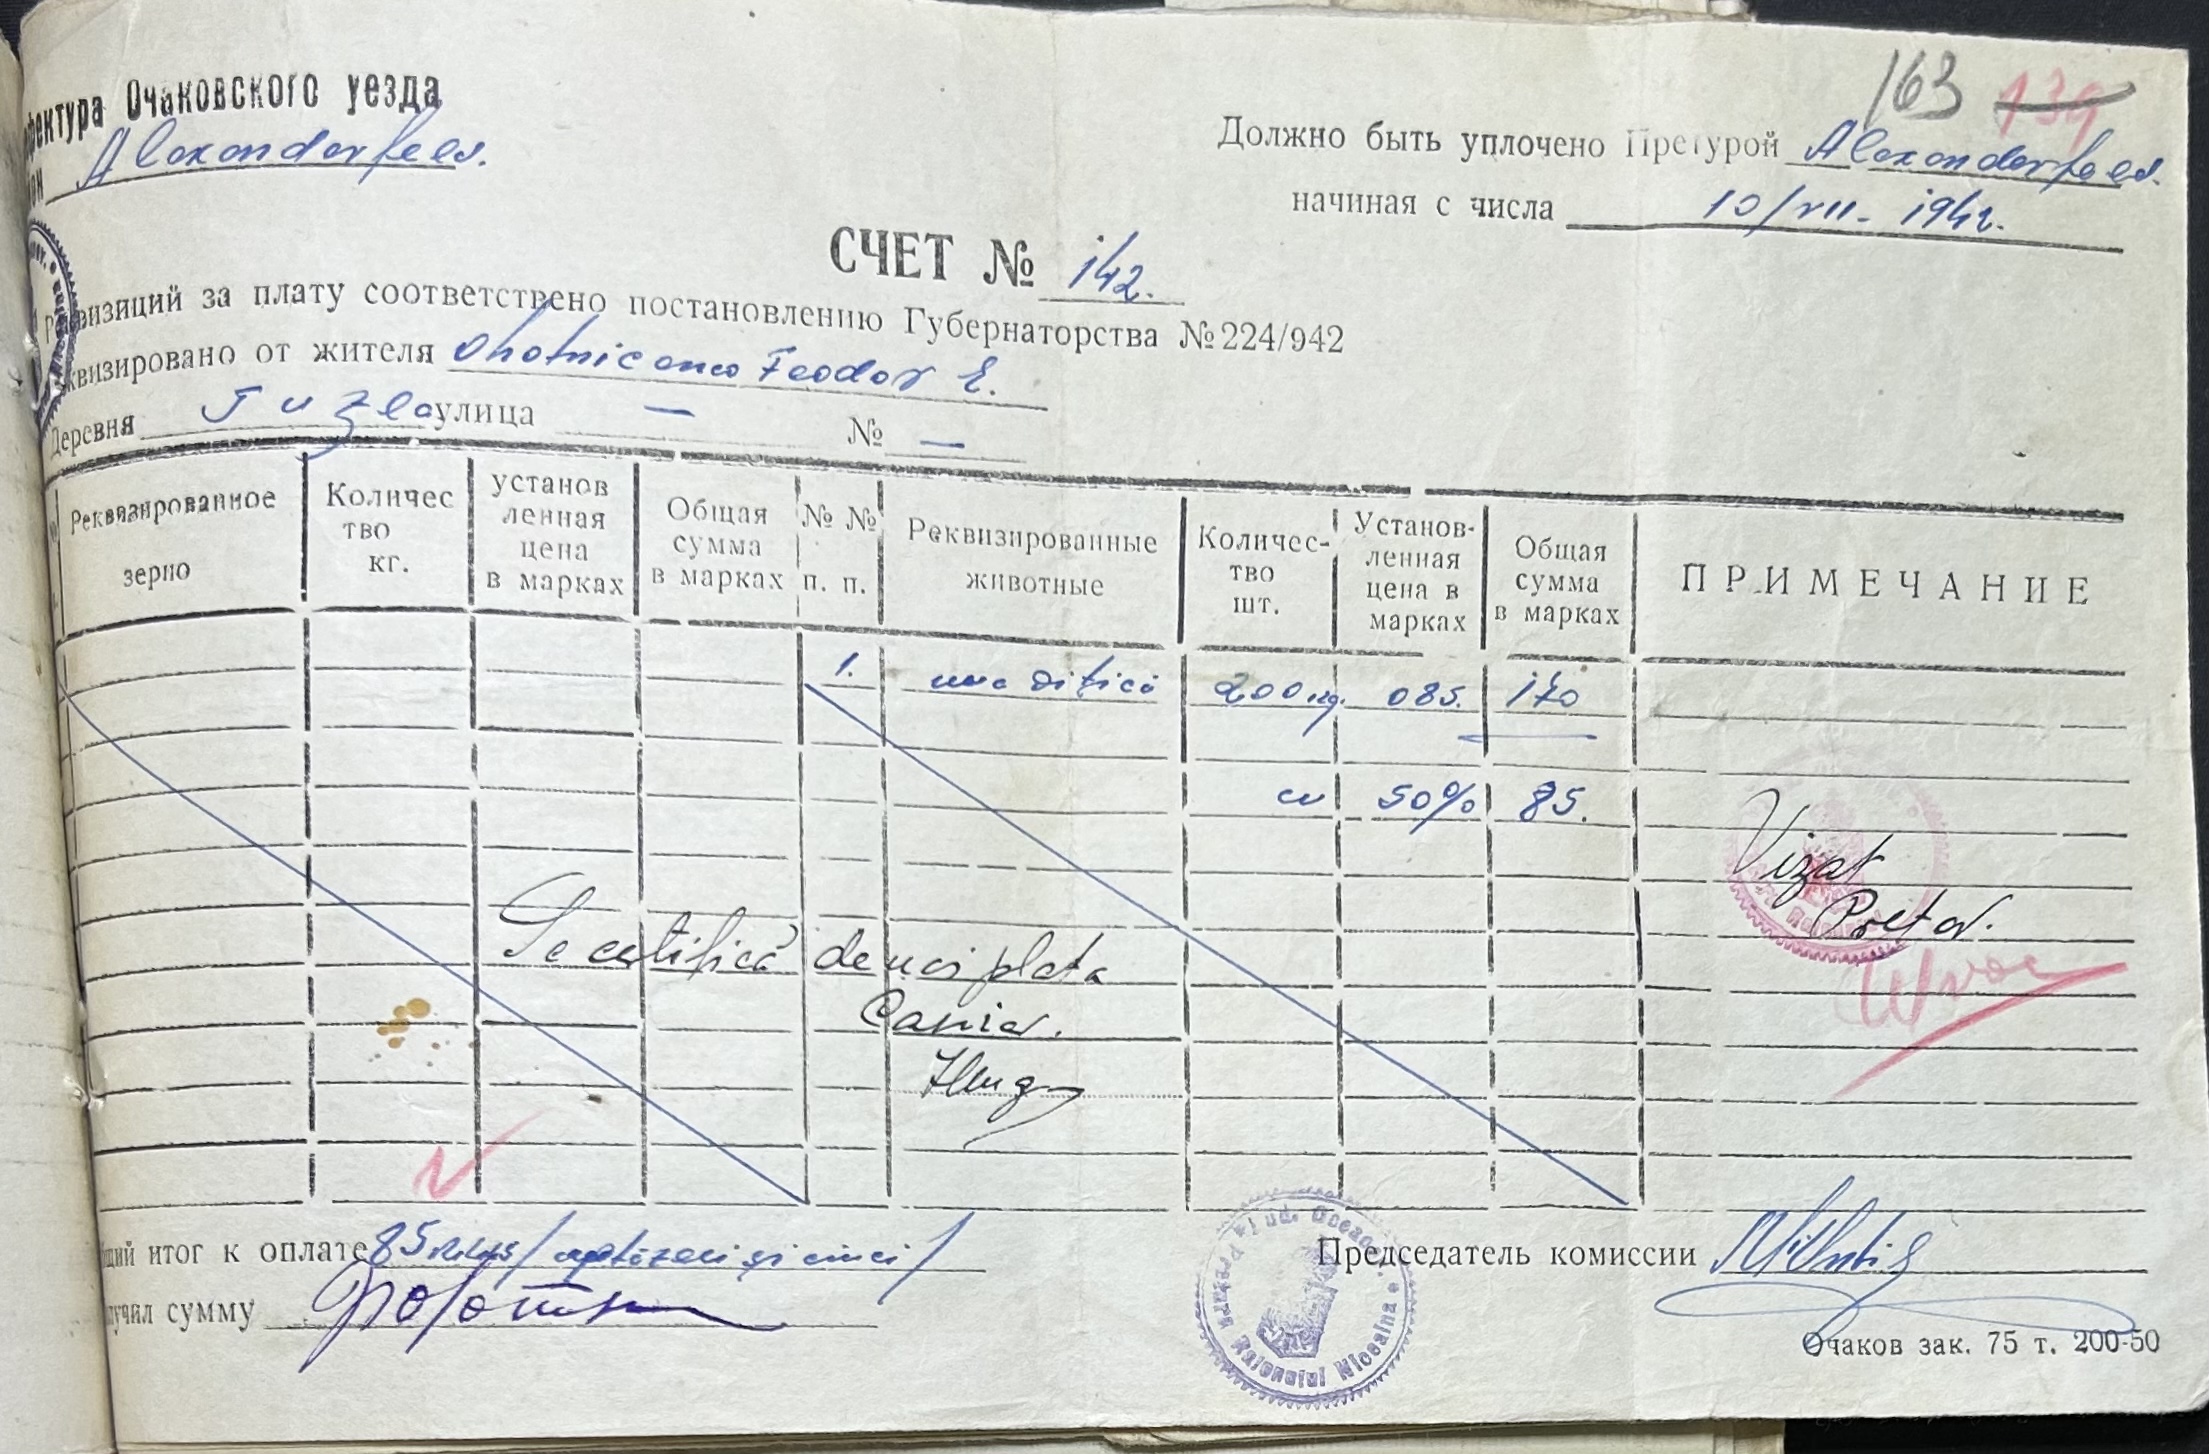 163 139
фектура Очаковского уезда
он Alexanderfeld.
Должно быть уплочено Претурой Alexanderfeld.
начиная с числа 10/VII - 1942.
СЧЕТ № 142.
реквизиций за плату соответствено постановлению Губернаторства №224/942
квизировано от жителя Feodor E.
Деревня Tuzla улица — № —
Реквизированное зерно
Количес тво кг.
установ ленная цена в марках
Общая сумма в марках
№ № п. п.
Реквизированные животные
Количес- тво шт.
Установ- ленная цена в марках
Общая сумма в марках
ПРИМЕЧАНИЕ
1. una 200 kg. 085. 170
cu 50% 85.
Vizat
Pretor.
Se certifică de noi plata
Casier.
щий итог к оплате 85 / optzeci și cinci /
лучил сумму
Председатель комиссии
Jud. Oceacov • Pretura Raionului
Очаков зак. 75 т. 200-50